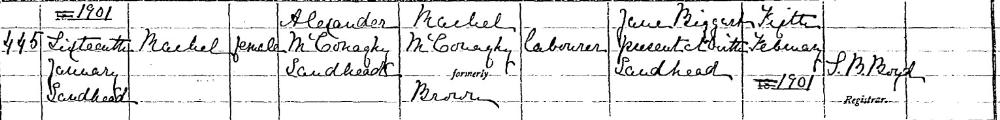 1901 Alexander Rachel Jane Biggart Fifth
445 Sixteenth Rachel female McConaghy McConaghy labourer present at birth February
January Sandhead formerly Sandhead 1901 S. B. Boyd
Sandhead Brown Registrar.